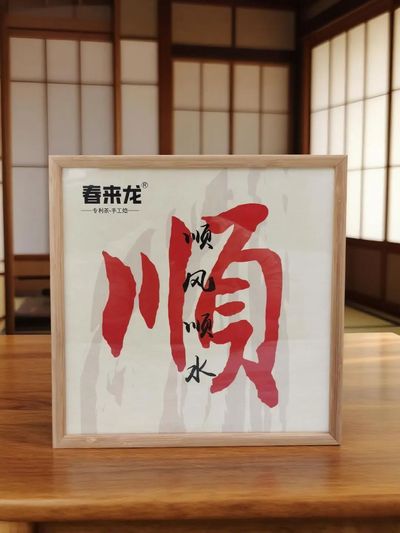 春来龙®
专利茶·手工焙
順
顺风顺水